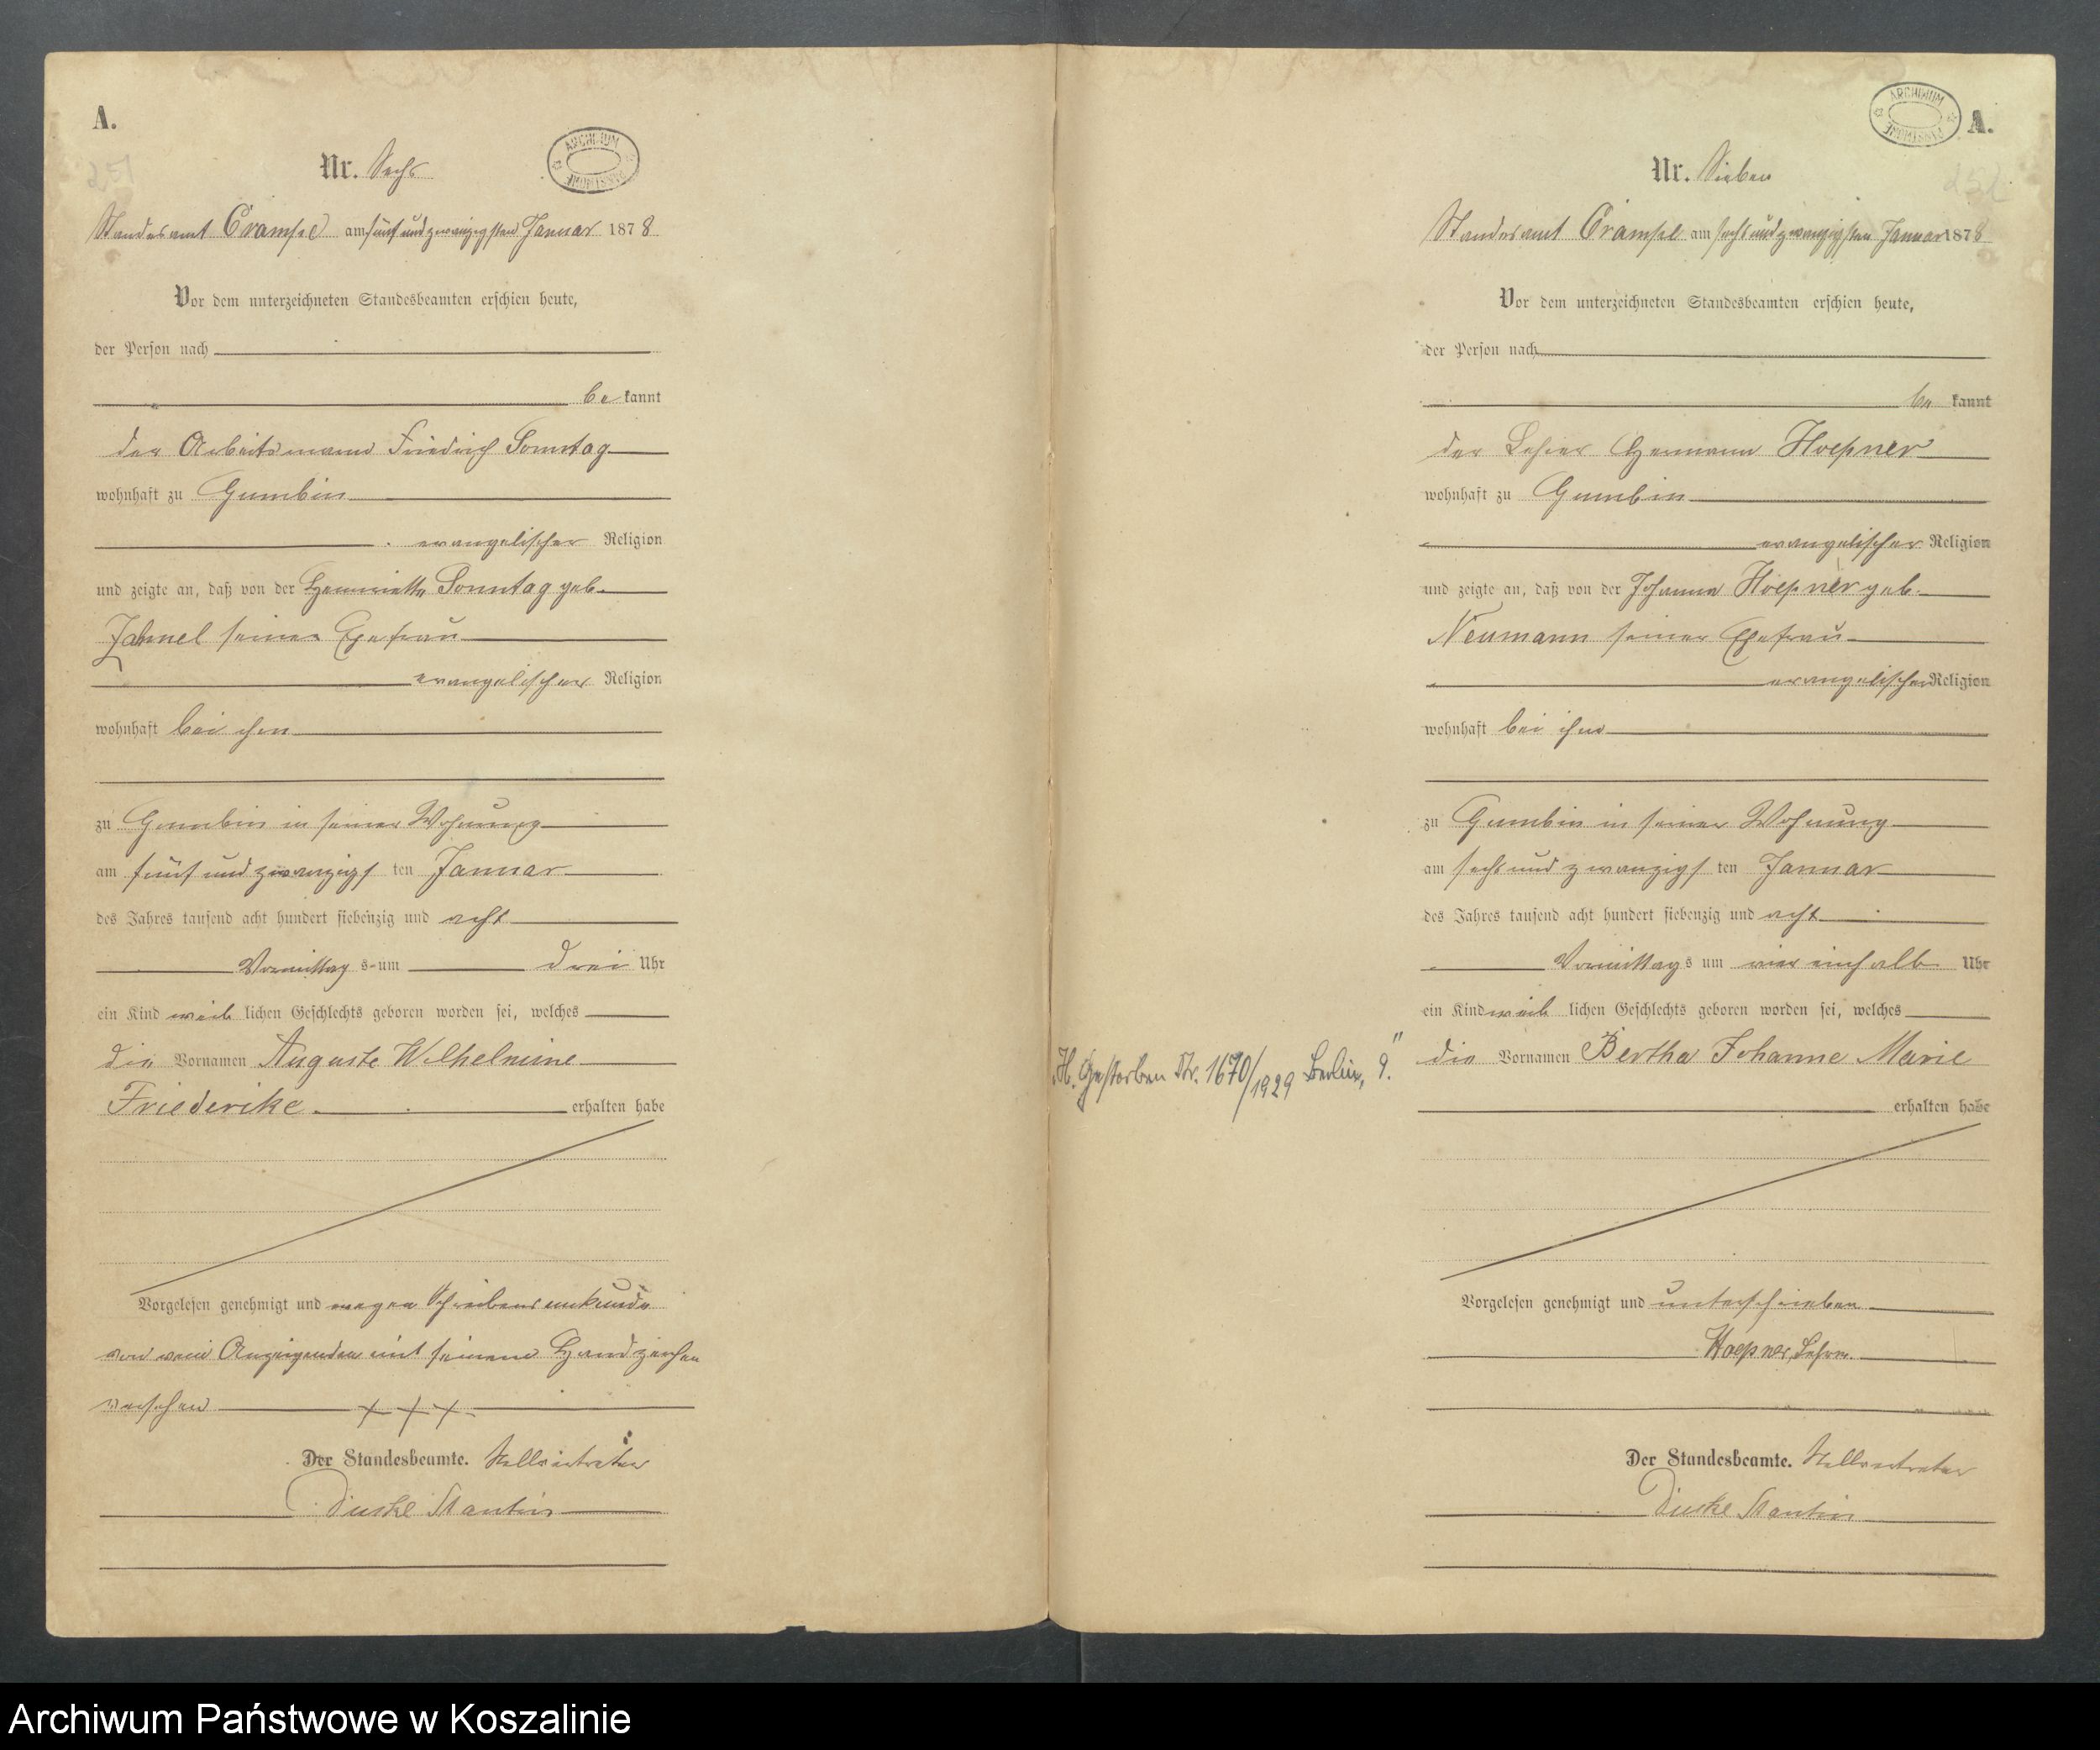 A.
ARCHIWUM PAŃSTWOWE
Nr. Sechs
Standesamt Crampel am fünfundzwanzigsten Januar 1878
Vor dem unterzeichneten Standesbeamten erschien heute,
der Person nach
be kannt
der Arbeitsmann Friedrich Sonntag
wohnhaft zu Gumbin
evangelischer Religion
und zeigte an, daß von der Henriette Sonntag geb.
seiner Ehefrau
evangelischer Religion
wohnhaft bei ihm
zu Gumbin in seiner Wohnung
am fünfundzwanzigs ten Januar
des Jahres tausend acht hundert siebenzig und acht
Vormittag s um drei Uhr
ein Kind weib lichen Geschlechts geboren worden sei, welches
die Vornamen Auguste Wilhelmine
Friederike erhalten habe
Vorgelesen genehmigt und wegen Schreibensunkunde
von dem Anzeigenden mit seinem Handzeichen
versehen + + +
Der Standesbeamte. Stellvertreter
A.
ARCHIWUM PAŃSTWOWE
Nr. Sieben
Standesamt Crampel am sechsundzwanzigsten Januar 1878
Vor dem unterzeichneten Standesbeamten erschien heute,
der Person nach
be kannt
der Lehrer Hermann Hoepner
wohnhaft zu Gumbin
evangelischer Religion
und zeigte an, daß von der Johanna Hoepner geb.
Neumann seiner Ehefrau
evangelischer Religion
wohnhaft bei ihm
zu Gumbin in seiner Wohnung
am sechsundzwanzigs ten Januar
des Jahres tausend acht hundert siebenzig und acht
Vormittag s um vier einhalb Uhr
ein Kind weib lichen Geschlechts geboren worden sei, welches
die Vornamen Bertha Johanne Marie
erhalten habe
H. Gestorben Nr. 1670/1929 Berlin, 9."
Vorgelesen genehmigt und unterschrieben
Hoepner, Lehrer.
Der Standesbeamte. Stellvertreter
Archiwum Państwowe w Koszalinie